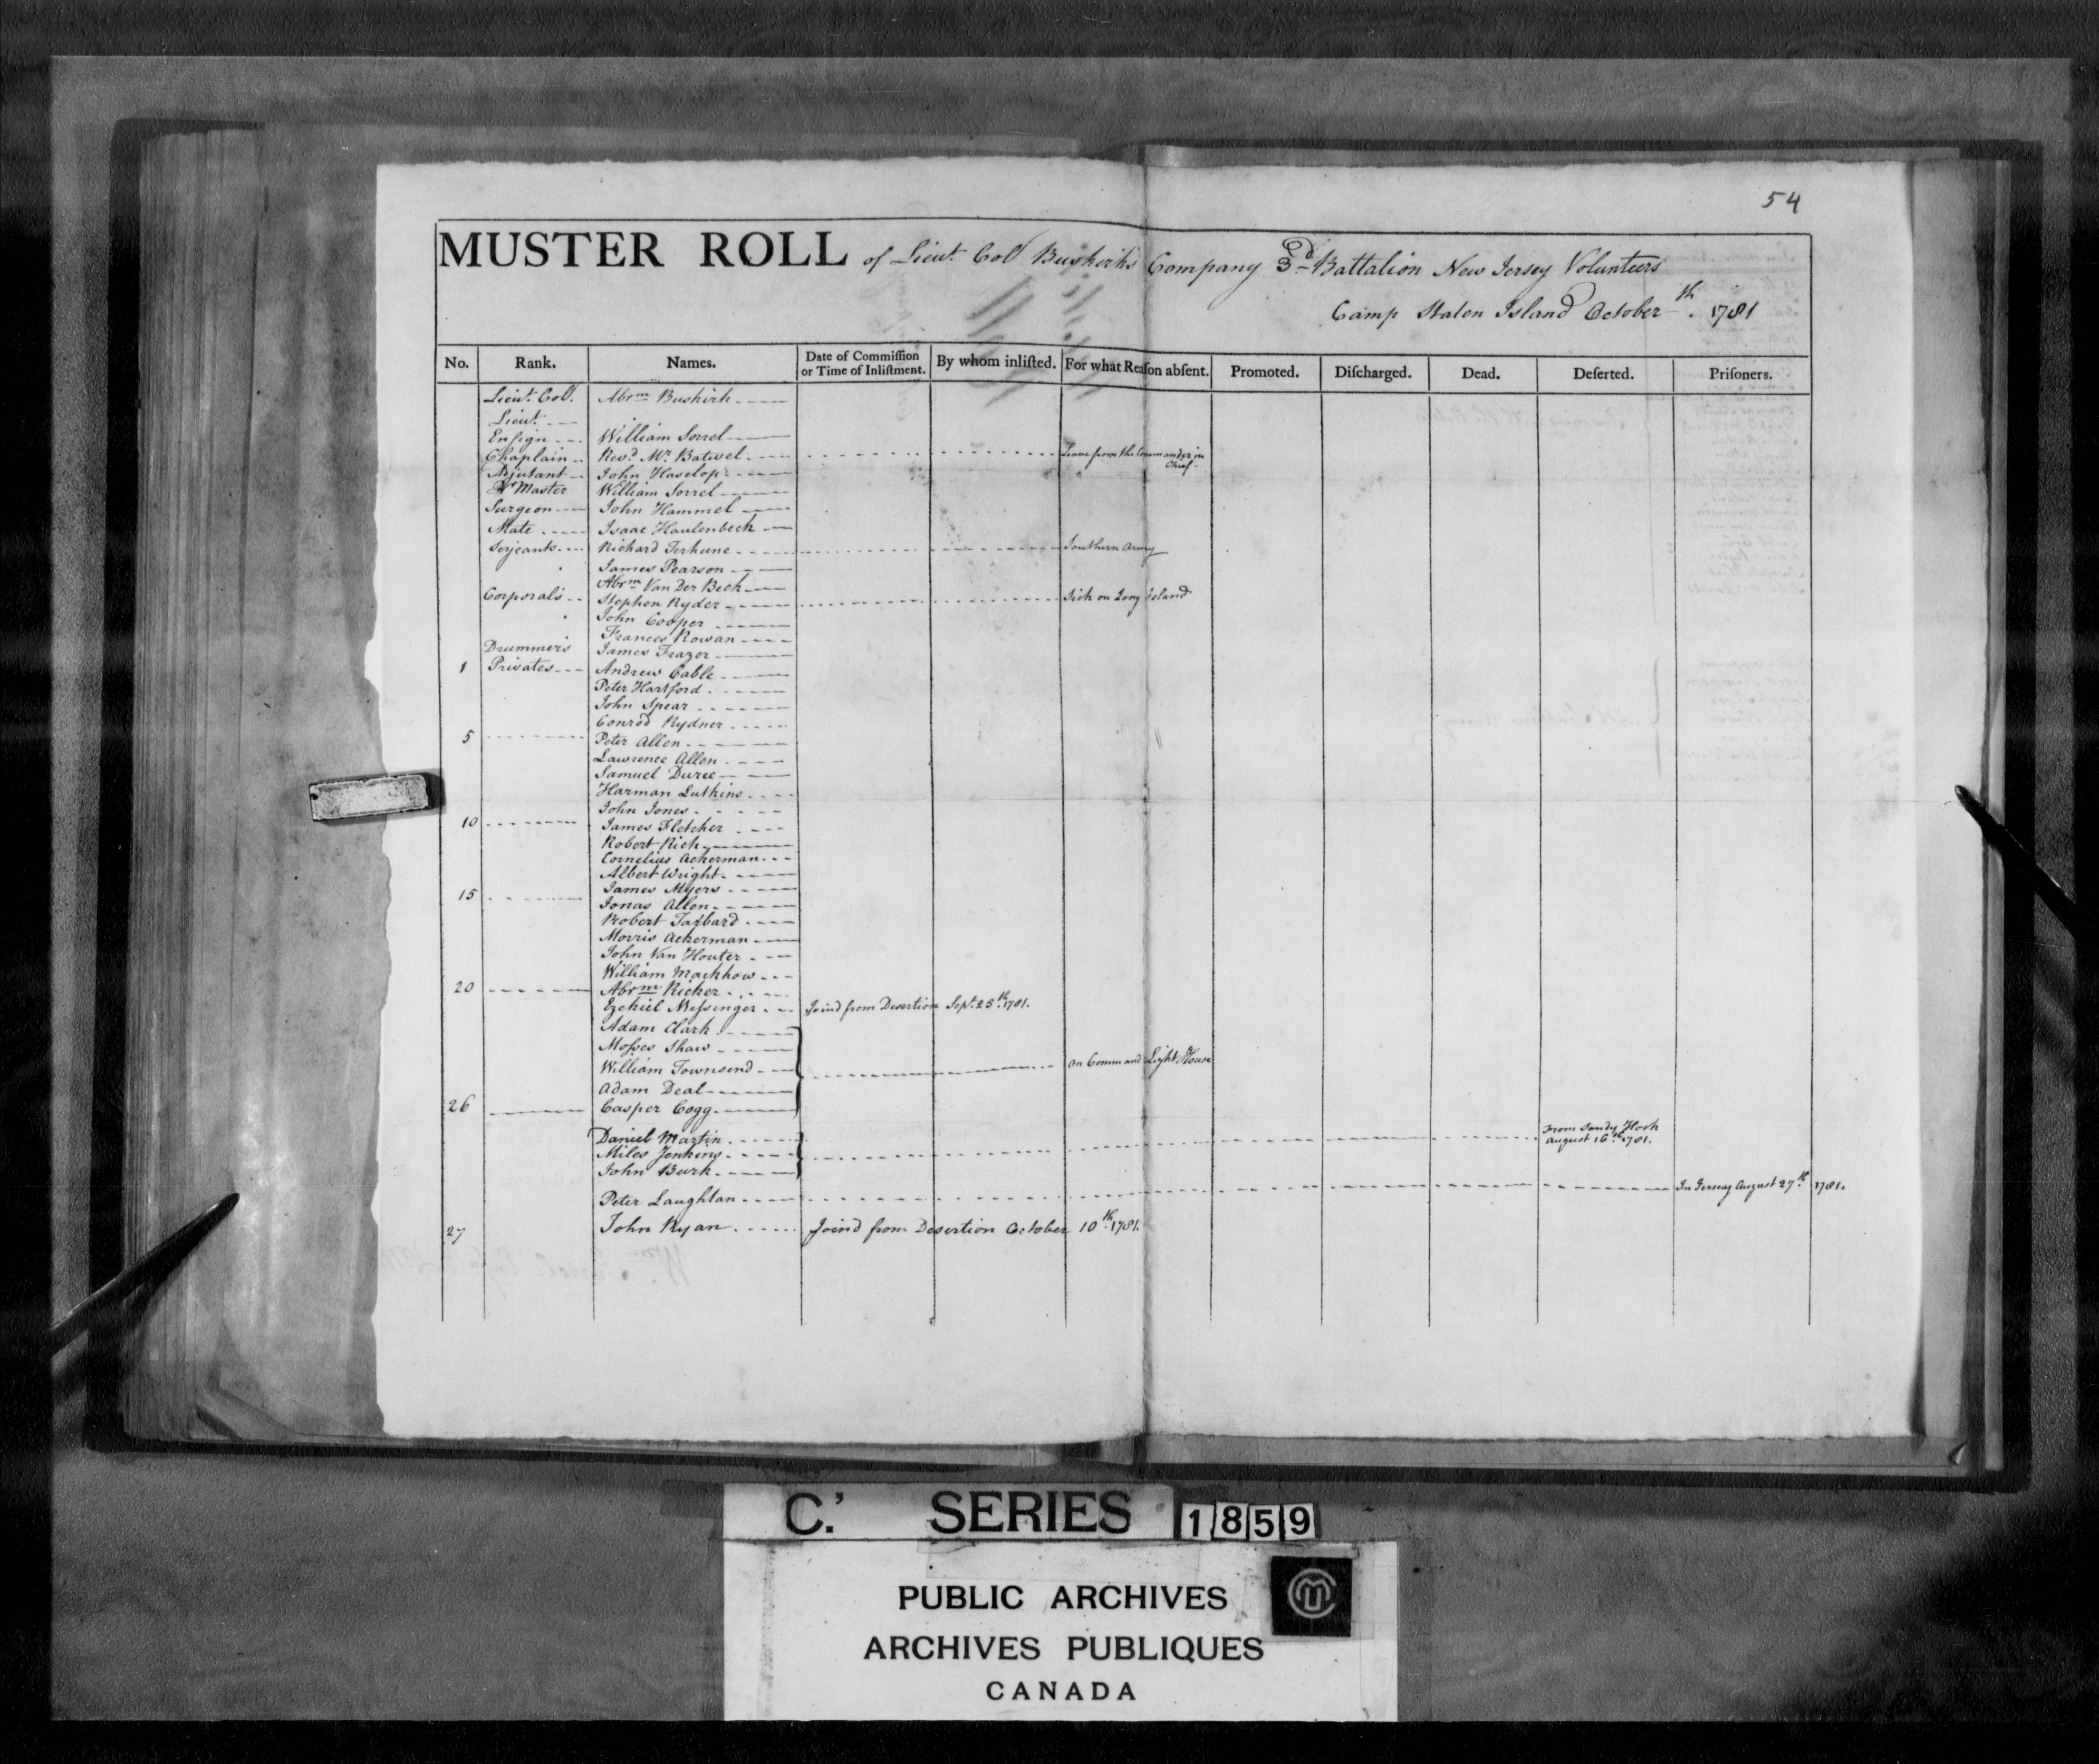 54
MUSTER ROLL of Lieut. Col Buskirk's Company 3d Battalion New Jersey Volunteers
Camp Staten Island October th. 1781
No. Rank. Names. Date of Commission or Time of Inlistment. By whom inlisted. For what Reason absent. Promoted. Discharged. Dead. Deserted. Prisoners.
Lieut. Col. Abrm Buskirk
Lieut.
Ensign William Sorrel
Chaplain Revd. Mr. Batwel Leave from the Commander in Chief
Adjutant John Haselop
Qr Master William Sorrel
Surgeon John Hammel
Mate Isaac Haulenbeck
Serjeants Richard Terhune Southern Army
James Pearson
Abrm Van Der Beek
Corporals Stephen Ryder Sick on Long Island
John Cooper
Frances Rowan
Drummers James Frazer
1 Privates Andrew Cable
Peter Hartford
John Spear
Conrod Rydner
5 Peter Allen
Lawrence Allen
Samuel Duree
Harman Lutkins
John Jones
10 James Fletcher
Robert Rich
Cornelius Ackerman
Albert Wright
James Myers
15 Jonas Allen
Robert Tarbard
Morris Ackerman
John Van Houter
William
20 Abrm Ricker
Ezekiel Messinger Joind from Desertion Sept. 25th. 1781.
Adam Clark
Mosses Shaw
William Townsend On Command Light House
Adam Deal
26 Casper Cogg
Daniel Martin From Sandy Hook August 16th. 1781.
Miles Jenkins
John Burk
Peter Laughlan In Jersey August 27th. 1781.
27 John Ryan Joind from Desertion October 10th. 1781.
C.' SERIES 1859
PUBLIC ARCHIVES
ARCHIVES PUBLIQUES
CANADA